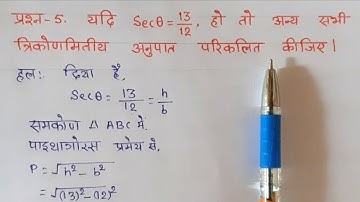 प्रश्न-5. यदि Secθ = 13/12, हो तो अन्य सभी
त्रिकोणमितीय अनुपात परिकलित कीजिए।
हल:. दिया है,
Secθ = 13/12 = h/b
समकोण Δ ABC में.
पाइथागोरस प्रमेय से,
P = √h²-b²
= √(13)²-(12)²